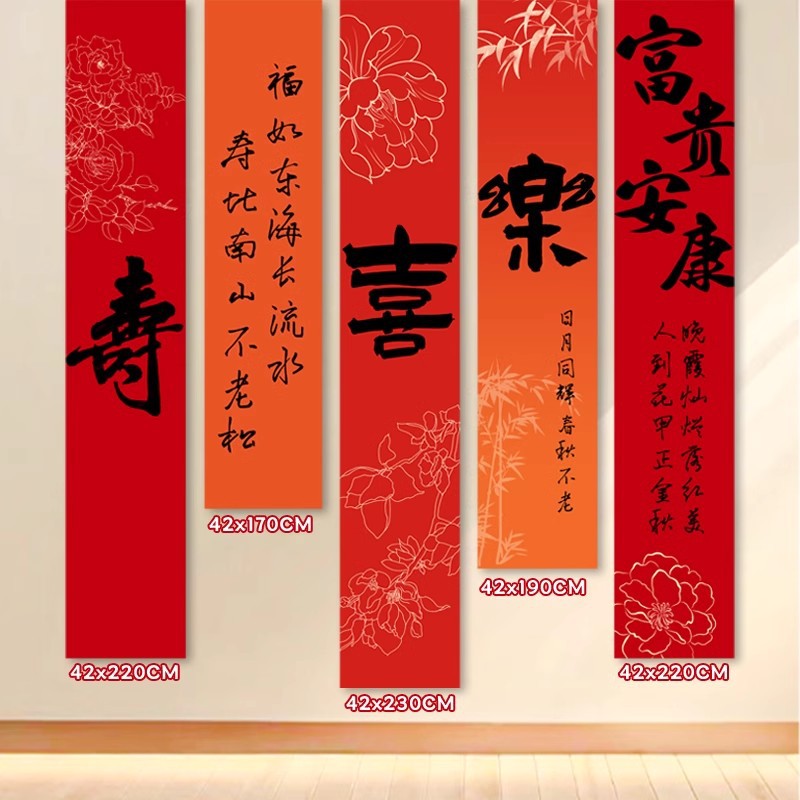 壽
42x220CM
福如东海长流水
寿比南山不老松
42x170CM
喜
42x230CM
樂
日月同辉春秋不老
42x190CM
富贵安康
晚霞灿烂落红美
人到花甲正金秋
42x220CM